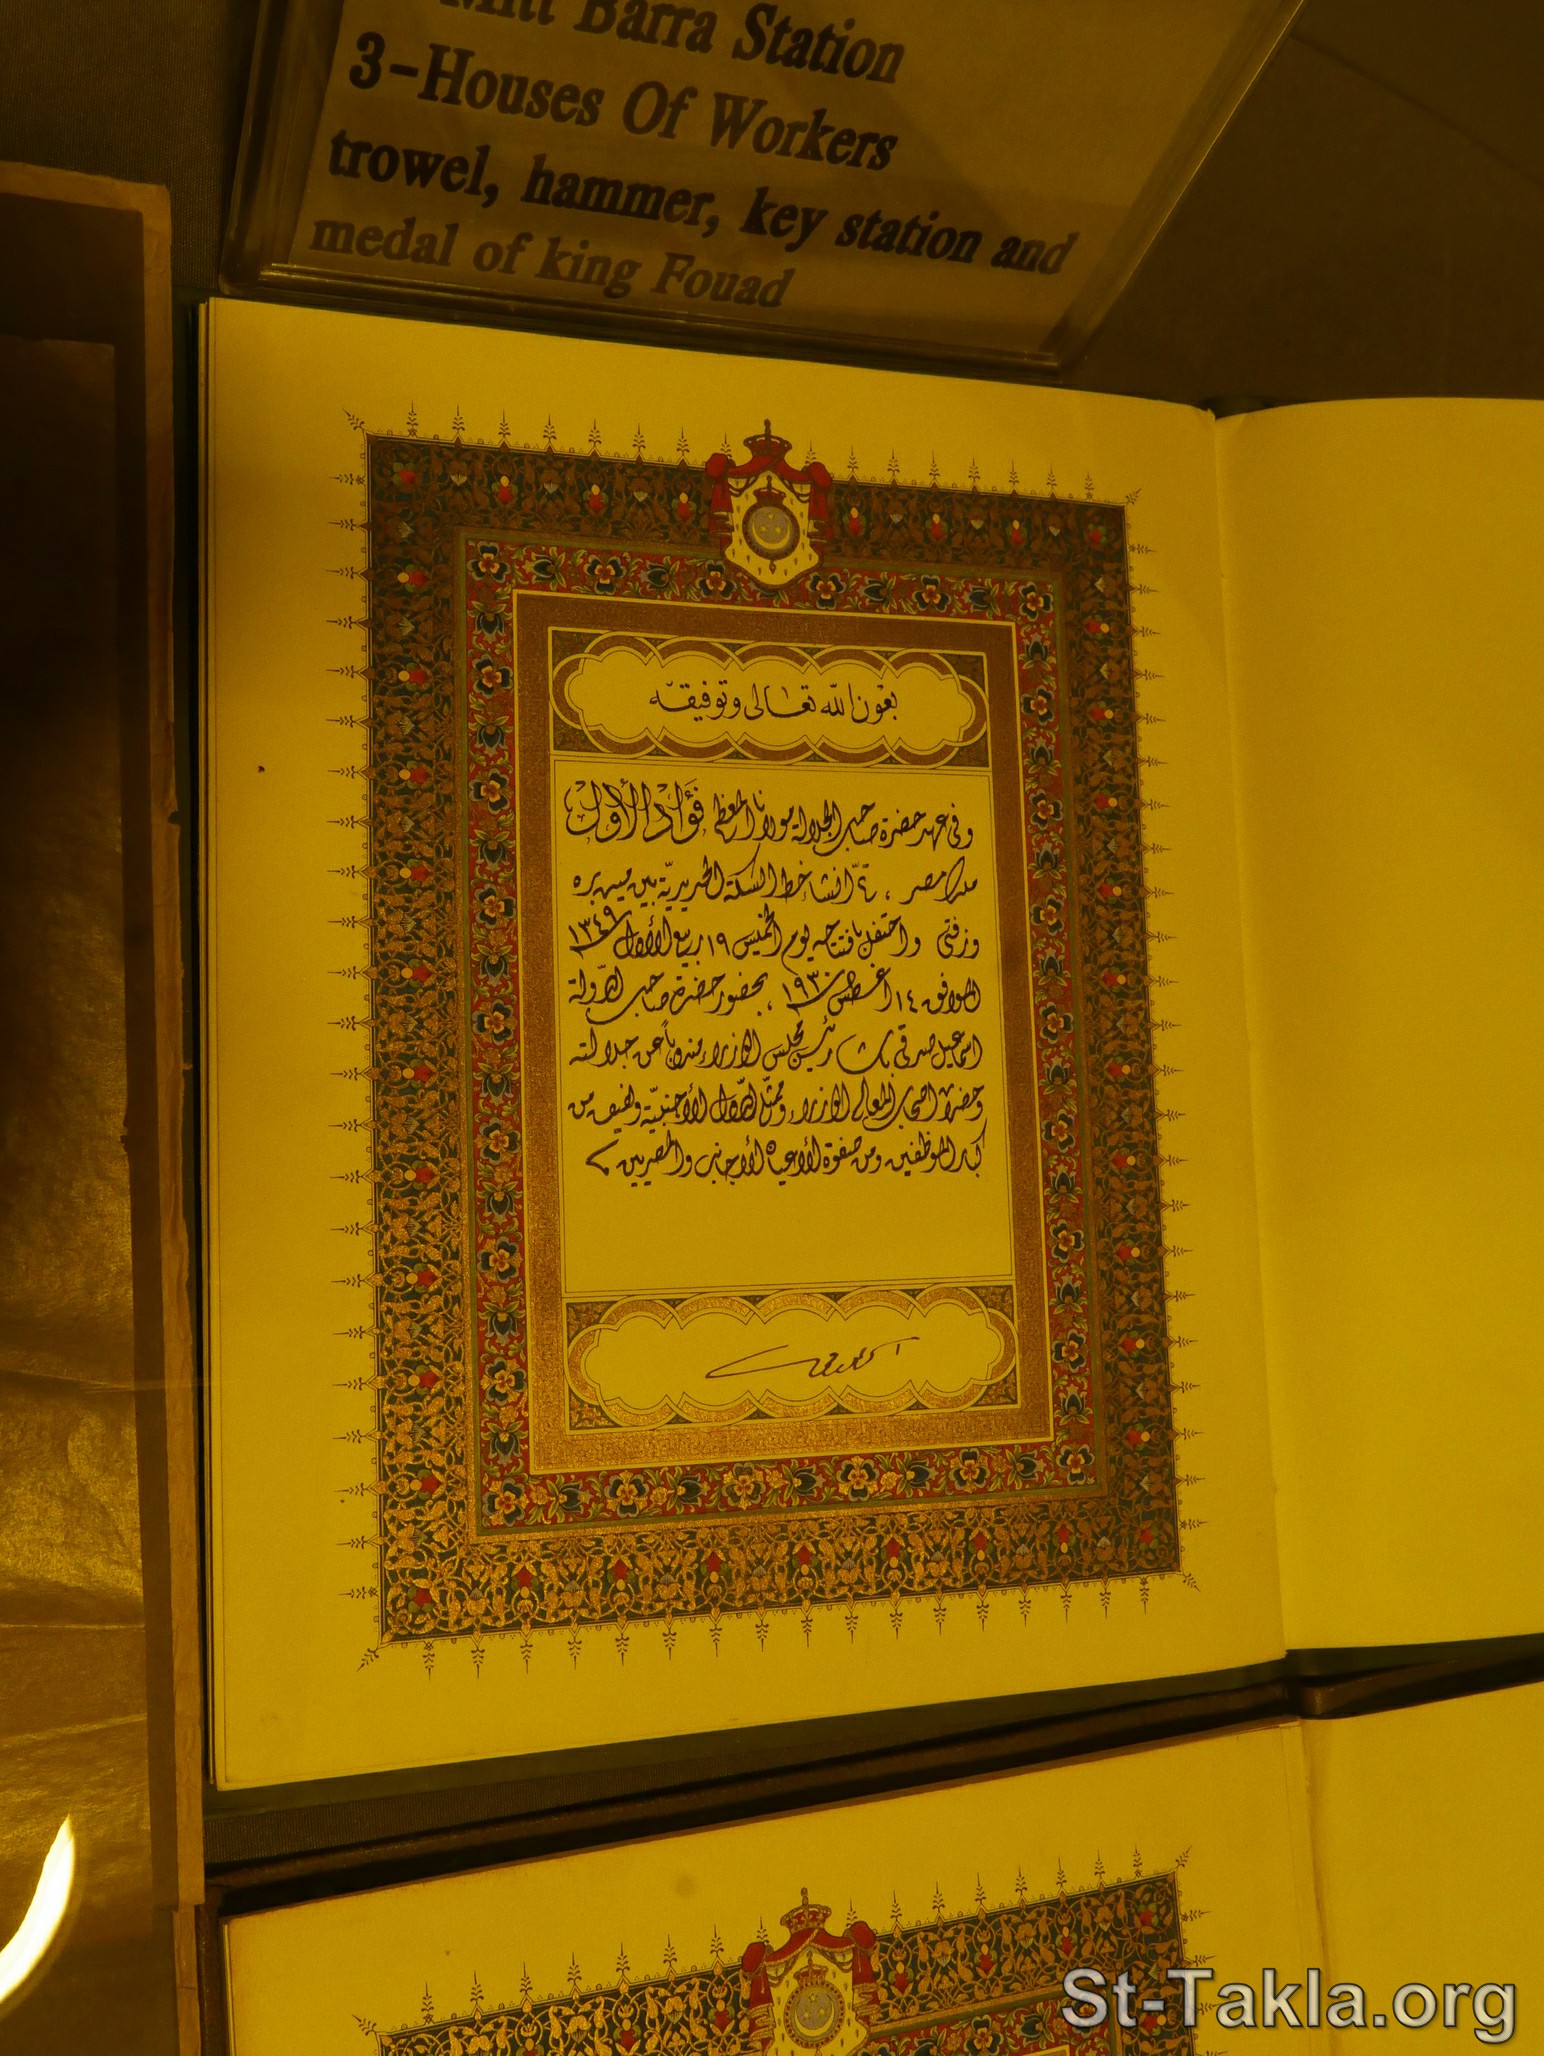 Mitt Barra Station
3-Houses Of Workers
trowel, hammer, key station and
medal of king Fouad
بعون الله تعالى وتوفيقه
وفي عهد حضرة صاحب الجلالة مولانا المعظم فؤاد الأول
ملك مصر ، تمّ انشاء خط السكة الحديديّة بين ميت بره
وزفتى واحتفل بافتتاحه يوم الخميس ١٩ ربيع الأول ١٣٤٩
الموافق ١٤ اغسطس ١٩٣٠ ، بحضور حضرة صاحب الدّولة
اسماعيل صدقي باشا رئيس مجلس الوزراء مندوباً عن جلالته
وحضرات اصحاب المعالي الوزراء وممثّلي الدّول الأجنبيّة ولفيف من
كبار الموظفين ومن صفوة الأعيان الأجانب والمصريين
St-Takla.org